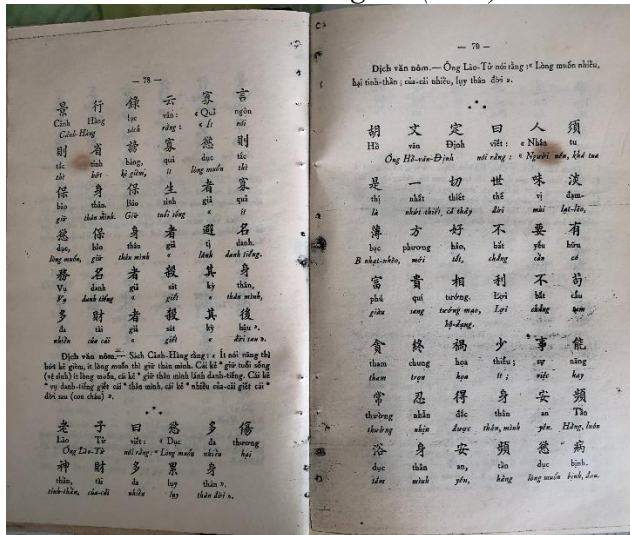 — 78 —
景 行 錄 云 寡 言
Cảnh Hàng lục vân : « Quả ngôn
Cảnh-Hàng sách rằng : « Ít nói
則 省 謗 寡 慾 則
tắc tỉnh báng, quả dục tắc
thì bớt kẻ gièm, ít lòng muốn thì
保 身 保 生 者 寡
bảo thân. Bảo sinh giả quả
giữ thân mình. Giữ tuổi sống « ít
慾 保 身 者 避 名
dục, bảo thân giả tị danh.
lòng muốn, giữ thân mình « lánh danh tiếng.
務 名 者 殺 其 身
Vụ danh giả sát kỳ thân,
Vụ danh tiếng « giết « thân mình,
多 財 者 殺 其 後
đa tài giả sát kỳ hậu ».
nhiều của cải « giết « đời sau ».
Dịch văn nôm.— Sách Cảnh-Hàng rằng : « Ít nói năng thì
bớt kẻ gièm, ít lòng muốn thì giữ thân mình. Cái kẻ « giữ tuổi sống
(vệ sinh) ít lòng muốn, cái kẻ « giữ thân mình lánh danh-tiếng. Cái kẻ
« vụ danh-tiếng giết cái « thân mình, cái kẻ « nhiều của-cải giết cái «
đời sau (con cháu) ».
老 子 曰 慾 多 傷
Lão Tử viết : « Dục đa thương
Ông Lão-Tử nói rằng : « Lòng muốn nhiều hại
神 財 多 累 身
thần, tài đa lụy thân ».
tinh-thần, của-cải nhiều lụy thân đời ».
— 79 —
Dịch văn nôm.— Ông Lão-Tử nói rằng : « Lòng muốn nhiều,
hại tinh-thần ; của-cải nhiều, lụy thân đời ».
胡 文 定 曰 人 須
Hồ văn Định viết : « Nhân tu
Ông Hồ-văn-Định nói rằng : « Người nên, khá tua
是 一 切 世 味 淡
thị nhất thiết thế vị đạm-
là nhứt thiết, cả thảy đời mùi lạt-lẽo,
薄 方 好 不 要 有
bạc phương hảo, bất yếu hữu
nhạt-nhẽo, mới tốt, chẳng cần có
富 貴 相 利 不 苟
phú quí tướng. Lợi bất cẩu
giàu sang tướng mạo, Lợi chẳng tạm
bộ-dạng.
貪 終 禍 少 事 能
tham chung họa thiểu ; sự năng
tham trọn họa ít ; việc hay
常 忍 得 身 安 頻
thường nhẫn đắc thân an Tần
thường nhịn được thân, mình yên. Hằng, luôn
浴 身 安 頻 慾 病
dục thân an, tần dục bịnh.
tắm mình yên, hằng lòng muốn bịnh, đau.